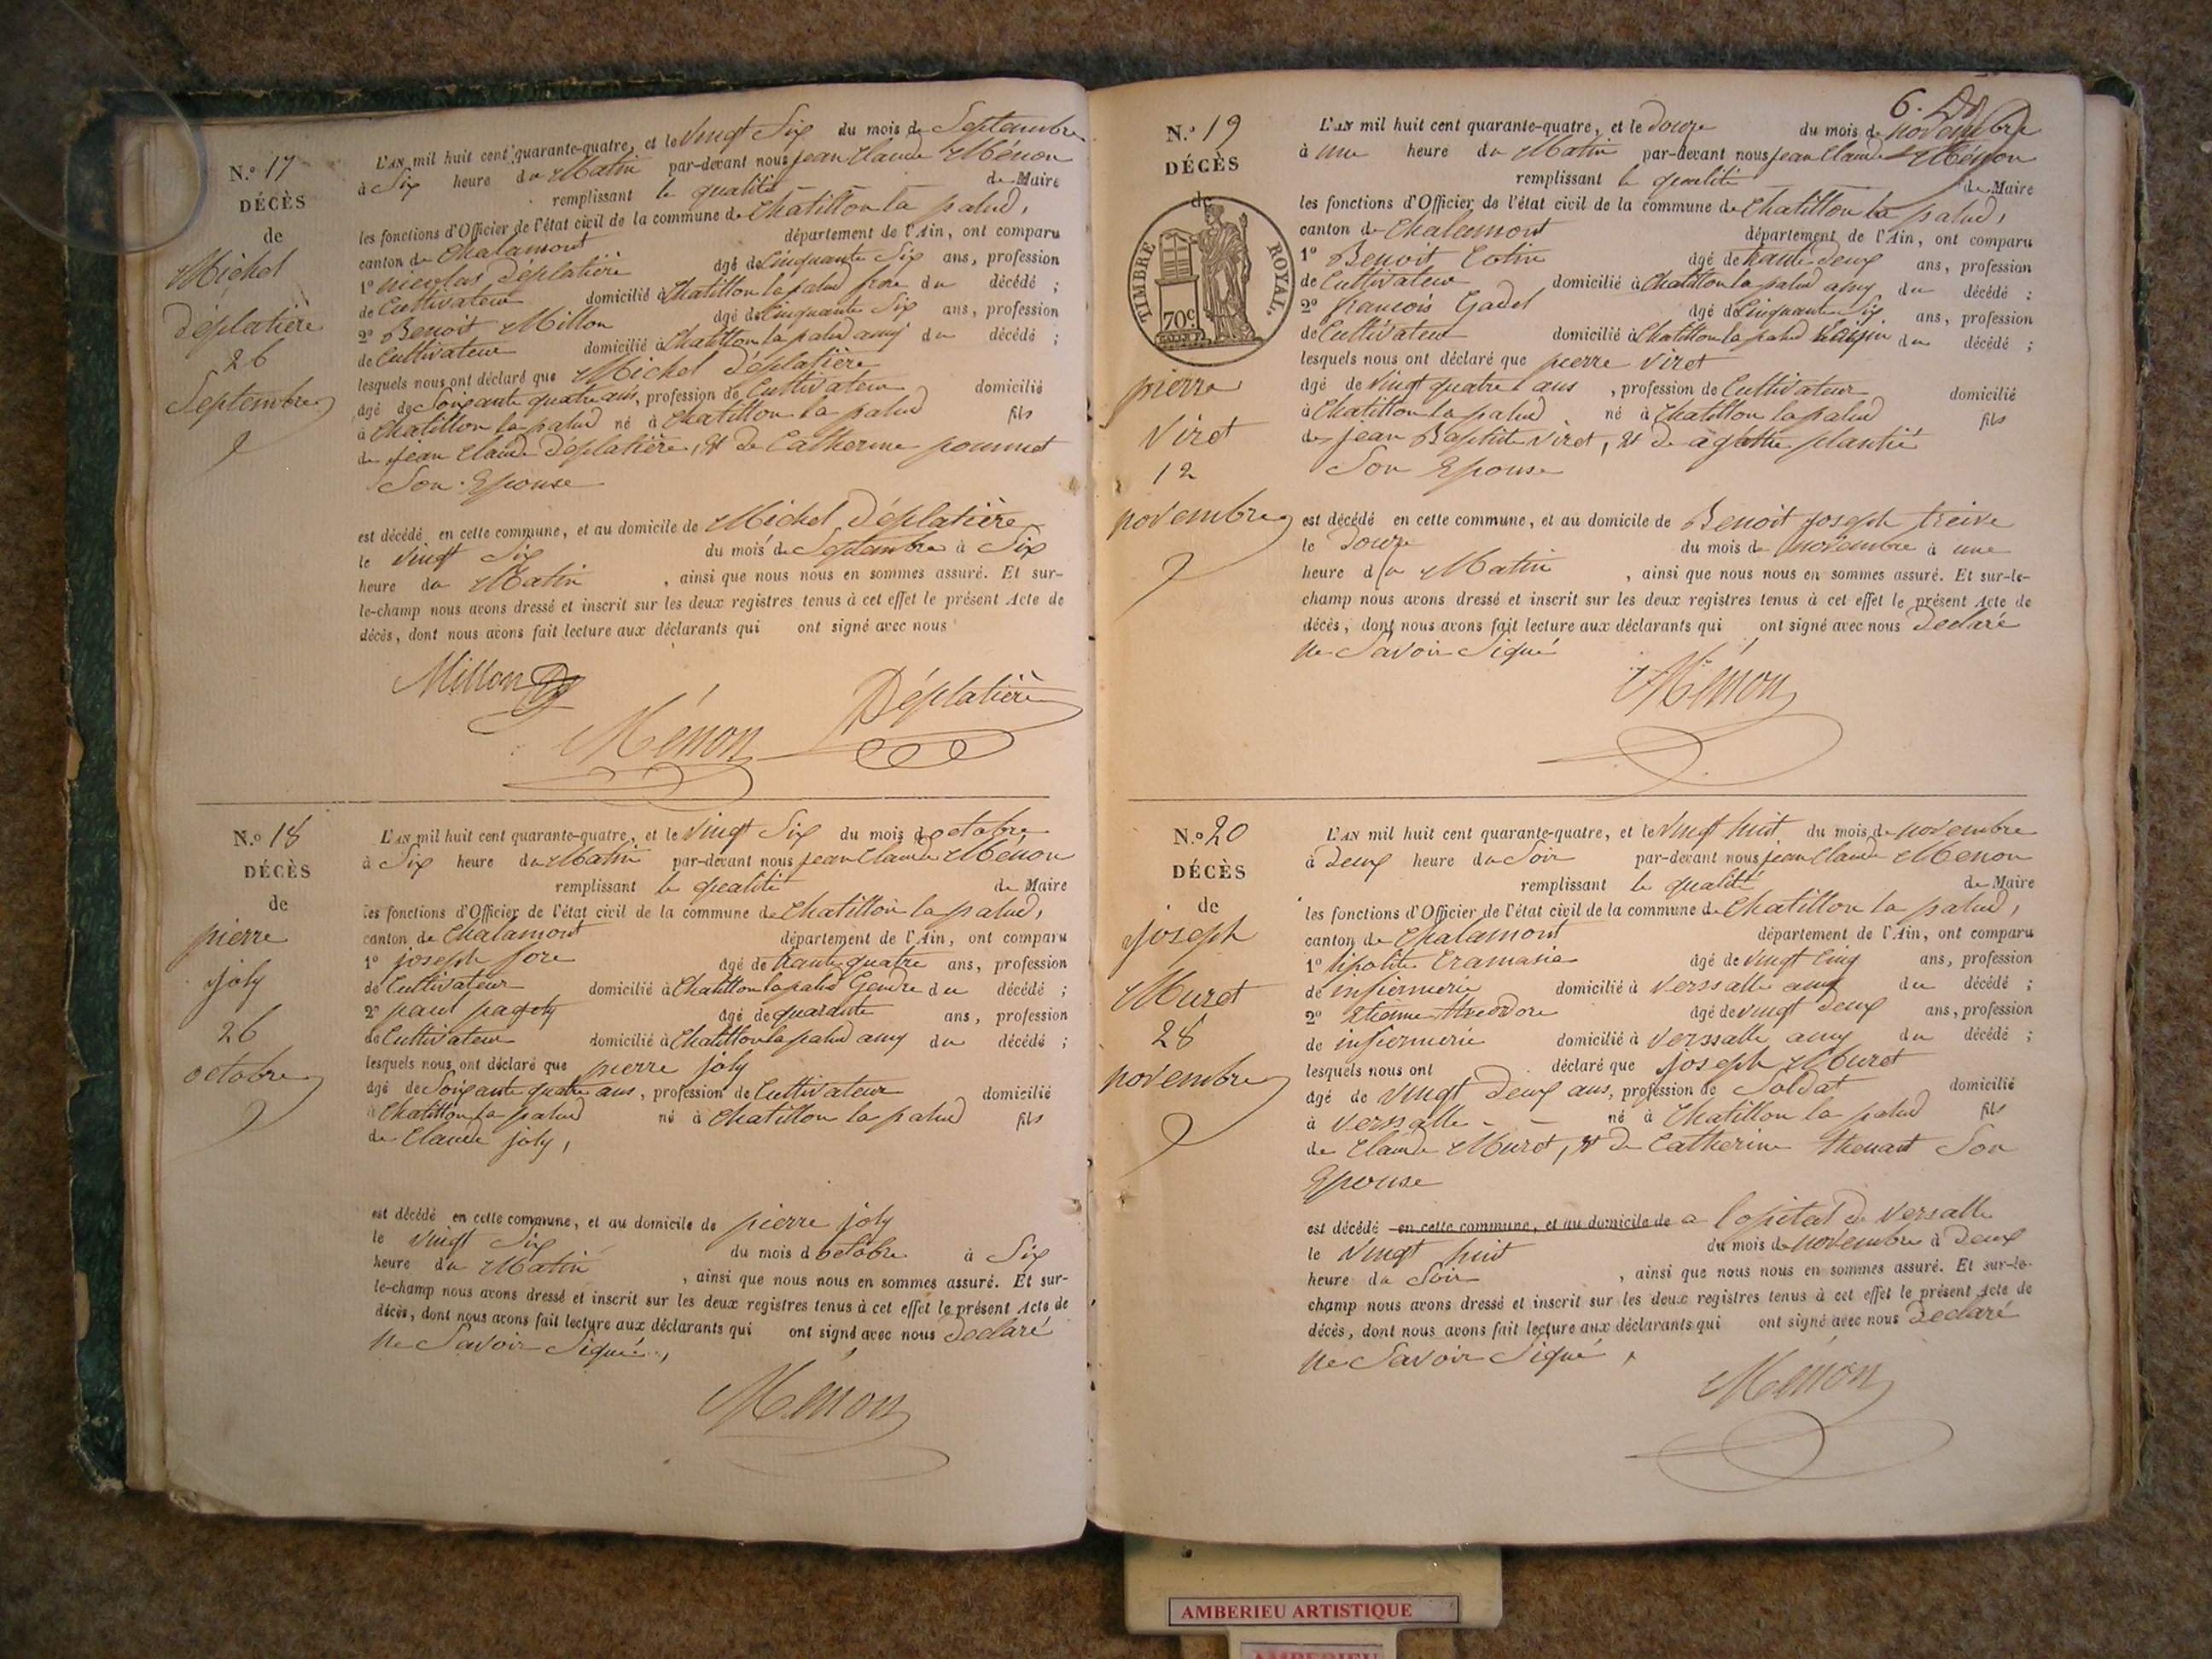 N.º 17
DÉCÈS
de
Michel
Déplatière
26
Septembre
L'AN mil huit cent quarante-quatre, et le Vingt Six du mois de Septembre
à Six heure du Matin par-devant nous jean Claude Ménon
remplissant la qualité de Maire
les fonctions d'Officier de l'état civil de la commune de Chatillon la palud,
canton de Chalamont département de l'Ain, ont comparu
1º nicolas Déplatière âgé de Cinquante Six ans, profession
de Cultivateur domicilié à Chatillon la palud frere du décédé ;
2º Benoit Millon âgé de Cinquante Six ans, profession
de Cultivateur domicilié à Chatillon la palud amy du décédé ;
lesquels nous ont déclaré que Michel Déplatière
âgé de Soixante quatre ans, profession de Cultivateur domicilié
à Chatillon la palud né à Chatillon la palud fils
de jean Claude Déplatière, et de Catherine pommet
Son Epouse
est décédé en cette commune, et au domicile de Michel Déplatière
le vingt Six du mois de Septembre à Six
heure du Matin , ainsi que nous nous en sommes assuré. Et sur-
le-champ nous avons dressé et inscrit sur les deux registres tenus à cet effet le présent Acte de
décès, dont nous avons fait lecture aux déclarants qui ont signé avec nous
Millon
Déplatière
Ménon
N.º 18
DÉCÈS
de
pierre
joly
26
octobre
L'AN mil huit cent quarante-quatre, et le Vingt Six du mois d octobre
à Six heure du Matin par-devant nous jean Claude Ménon
remplissant la qualité de Maire
les fonctions d'Officier de l'état civil de la commune de Chatillon la palud,
canton de Chalamont département de l'Ain, ont comparu
1º joseph fore âgé de trante quatre ans, profession
de Cultivateur domicilié à Chatillon la palud Gendre du décédé ;
2º paul pagoty âgé de quarante ans, profession
de Cultivateur domicilié à Chatillon la palud amy du décédé ;
lesquels nous ont déclaré que pierre joly
âgé de Soixante quatre ans, profession de Cultivateur domicilié
à Chatillon la palud né à Chatillon la palud fils
de Claude joly,
est décédé en cette commune, et au domicile de pierre joly
le vingt Six du mois d octobre à Six
heure du Matin , ainsi que nous nous en sommes assuré. Et sur-
le-champ nous avons dressé et inscrit sur les deux registres tenus à cet effet le présent Acte de
décès, dont nous avons fait lecture aux déclarants qui ont signé avec nous Declaré
Ne Savoir Signé,
Ménon
6.
N.º 19
DÉCÈS
de
TIMBRE ROYAL
70c
pierre
Viret
12
novembre
L'AN mil huit cent quarante-quatre, et le Douze du mois de novembre
à Une heure du Matin par-devant nous jean Claude Ménon
remplissant la qualité de Maire
les fonctions d'Officier de l'état civil de la commune de Chatillon la palud,
canton de Chalamont département de l'Ain, ont comparu
1º Benoit Cotin âgé de trante deux ans, profession
de Cultivateur domicilié à Chatillon la palud amy du décédé ;
2º francois Gadel âgé de Cinquante Six ans, profession
de Cultivateur domicilié à Chatillon la palud du décédé ;
lesquels nous ont déclaré que pierre Viret
âgé de Vingt quatre ans , profession de Cultivateur domicilié
à Chatillon la palud né à Chatillon la palud fils
de jean Baptiste Viret, et de agathe plantié
Son Epouse
est décédé en cette commune, et au domicile de Benoit joseph treive
le Douze du mois de novembre à une
heure du Matin , ainsi que nous nous en sommes assuré. Et sur-le-
champ nous avons dressé et inscrit sur les deux registres tenus à cet effet le présent Acte de
décès, dont nous avons fait lecture aux déclarants qui ont signé avec nous Declaré
Ne Savoir Signé
Ménon
N.º 20
DÉCÈS
de
joseph
Muret
28
novembre
L'AN mil huit cent quarante-quatre, et le Vingt huit du mois de novembre
à Deux heure du Soir par-devant nous jean Claude Menon
remplissant la qualité de Maire
les fonctions d'Officier de l'état civil de la commune de Chatillon la palud,
canton de Chalamont département de l'Ain, ont comparu
1º hipolite Cramasia âgé de Vingt Cinq ans, profession
de infiermerie domicilié à Verssalle amy du décédé ;
2º Etienne theodore âgé de vingt Deux ans, profession
de infiermerie domicilié à Verssalle amy du décédé ;
lesquels nous ont déclaré que joseph Muret
âgé de Vingt Deux ans, profession de Soldat domicilié
à Verssalle - - né à Chatillon la palud fils
de Claude Muret, et de Catherine thenant Son
Epouse
est décédé en cette commune, et au domicile de a lopital de Versalle
le Vingt huit du mois de novembre à Deux
heure du Soir , ainsi que nous nous en sommes assuré. Et sur-le-
champ nous avons dressé et inscrit sur les deux registres tenus à cet effet le présent Acte de
décès, dont nous avons fait lecture aux déclarants qui ont signé avec nous Declaré
Ne Savoir Signé,
Ménon
AMBERIEU ARTISTIQUE
AMBERIEU